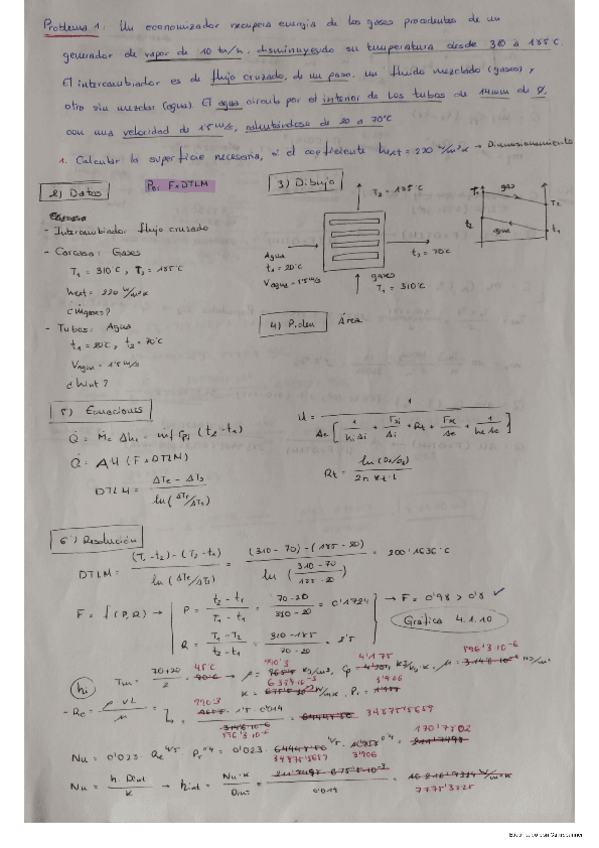 Problema 1: Un economizador recupera energía de los gases procedentes de un
generador de vapor de 10 tn/h, disminuyendo su temperatura desde 310 a 185°C.
El intercambiador es de flujo cruzado, de un paso, un fluido mezclado (gases),
otro sin mezclar (agua). El agua circula por el interior de los tubos de 14mm de Ø,
con una velocidad de 1'5 m/s, calentándose de 20 a 70°C
1. Calcular la superficie necesaria, si el coeficiente hext = 220 W/m²K → Dimensionamiento
2) Datos
Por F×DTLM
3) Dibujo
- Intercambiador flujo cruzado
- Carcasa: Gases
T₁ = 310°C, T₂ = 185°C
hext = 220 W/m²K
¿ṁgases?
- Tubos: Agua
t₁ = 20°C, t₂ = 70°C
Vagua = 1'5 m/s
¿hint?
T₂ = 185°C
Agua
t₁ = 20°C
Vagua = 1'5 m/s
t₂ = 70°C
gases
T₁ = 310°C
T₁
gas
T₂
t₂
agua
t₁
4) Piden
Área
5) Ecuaciones
Q̇ = ṁc Δhc = ṁf Cpf (t₂ - t₁)
Q̇ = A U (F × DTLM)
DTLM = (ΔTe - ΔTs) / ln(ΔTe/ΔTs)
U = 1 / Ae [1/(hi Ai) + rsi/Ai + Rt + rse/Ae + 1/(he Ae)]
Rt = ln(De/Di) / 2π kt L
6) Resolución
DTLM = (T₁ - t₂) - (T₂ - t₁) / ln(ΔTe/ΔTs) = (310 - 70) - (185 - 20) / ln((310 - 70)/(185 - 20)) = 200'1636°C
F = f(P, R) → P = (t₂ - t₁)/(T₁ - t₁) = (70 - 20)/(310 - 20) = 0'1724
R = (T₁ - T₂)/(t₂ - t₁) = (310 - 185)/(70 - 20) = 2'5
→ F = 0'98 > 0'8 ✓
Gráfica 4.1.10
hi
Tm = (70+20)/2 = 45°C → ρ = 990'3 kg/m³, Cp = 4'175 kJ/kg·K, μ = 596'3·10⁻⁶ kg/ms
Pr = 3'906
- Re = ρ·v·L/μ = 990'3 · 1'5 · 0'014 / 596'3·10⁻⁶ = 34875'5659
Nu = 0'023 · Re^4/5 · Pr^0'4 = 0'023 · 34875'5659^4/5 · 3'906^0'4 = 170'7702
Nu = h·Dint/K → hint = Nu·K/Dint = / 0'014 = 7775'3225